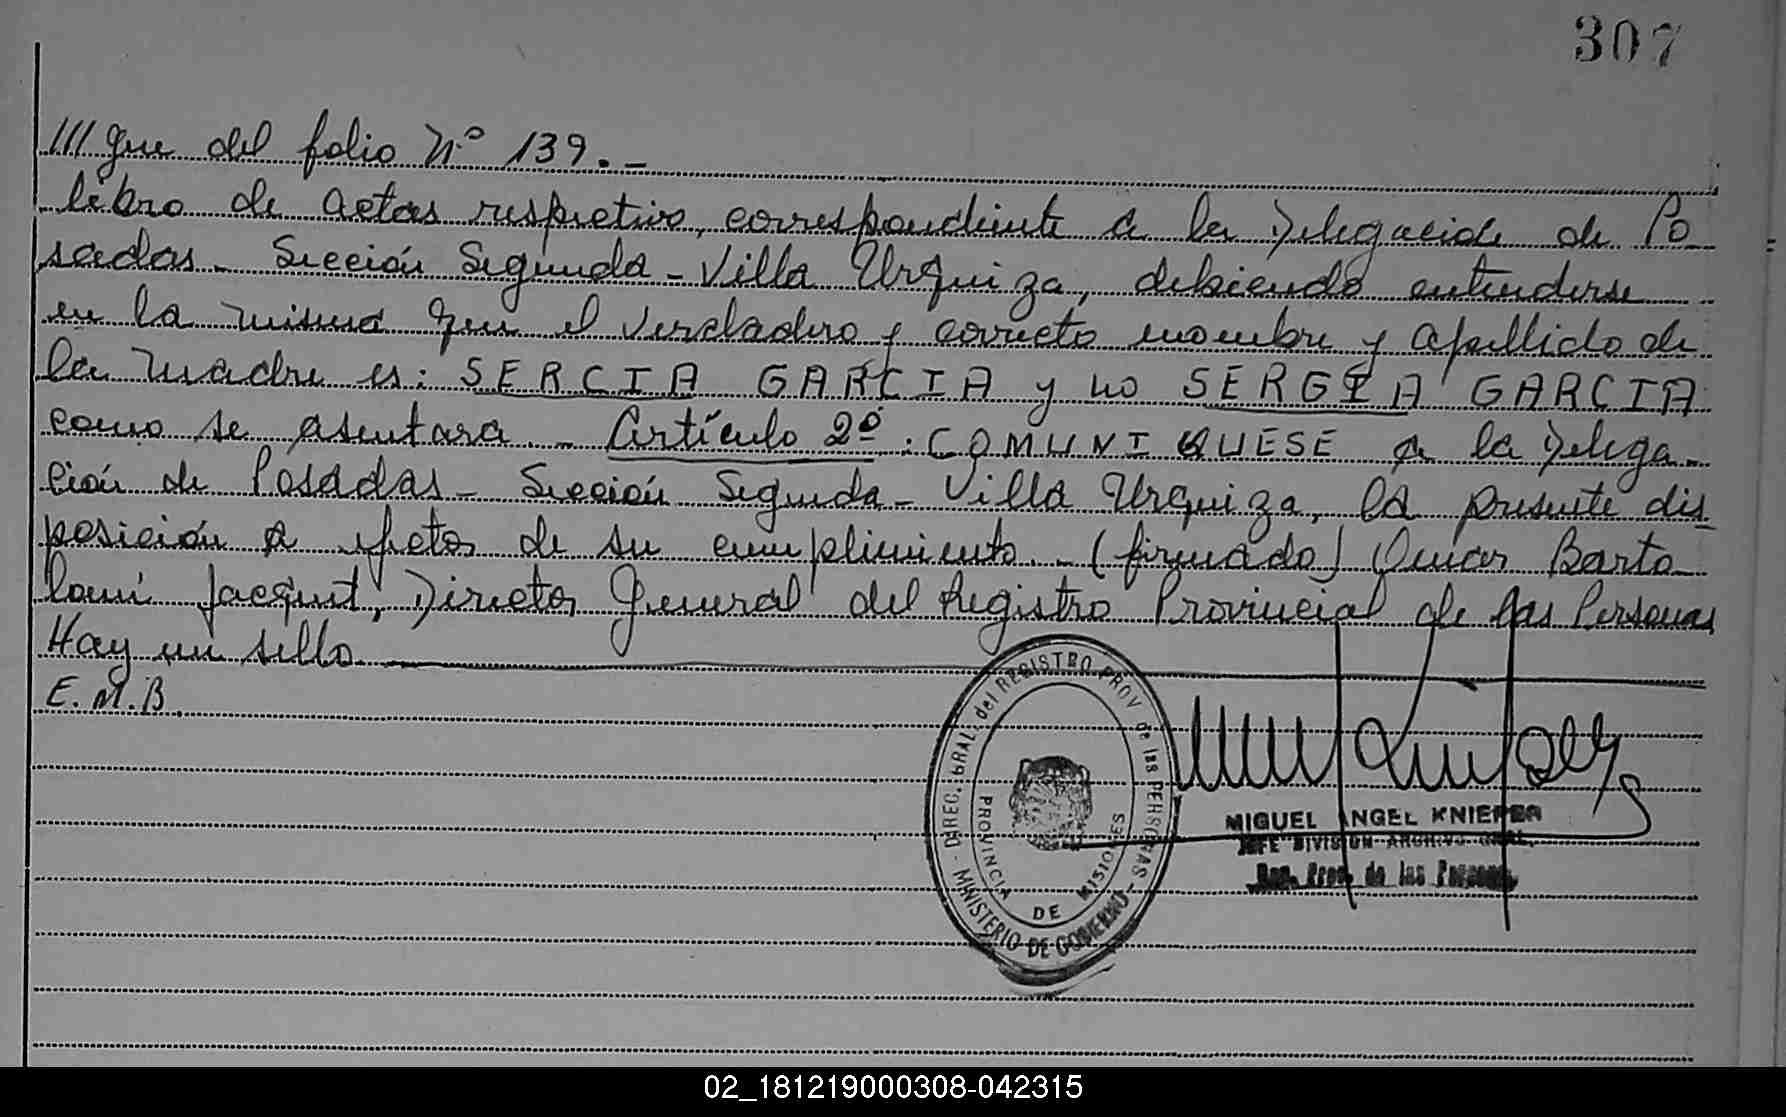 307
///gue del folio Nº 139.-
libro de actas respectivo, correspondiente a la Delegación de Po
sadas - Sección Segunda - Villa Urquiza, debiendo entenderse
en la misma que el verdadero y correcto nombre y apellido de
la madre es: SERCIA GARCIA y no SERGIA GARCIA
como se asentara - Artículo 2º: COMUNIQUESE a la Delega-
ción de Posadas - Sección Segunda - Villa Urquiza, la presente dis-
posición a efectos de su cumplimiento.- (firmado) Omar Barto
lomé Jacquet, Director General del Registro Provincial de las Personas
Hay un sello
E.M.B.
DIREC. GRAL. del REGISTRO PROV de las PERSONAS - MINISTERIO DE GOBIERNO -
PROVINCIA DE MISIONES
MIGUEL ANGEL KNIEPER
JEFE DIVISION ARCHIVO GRAL.
Reg. Prov. de las Personas
02_181219000308-042315